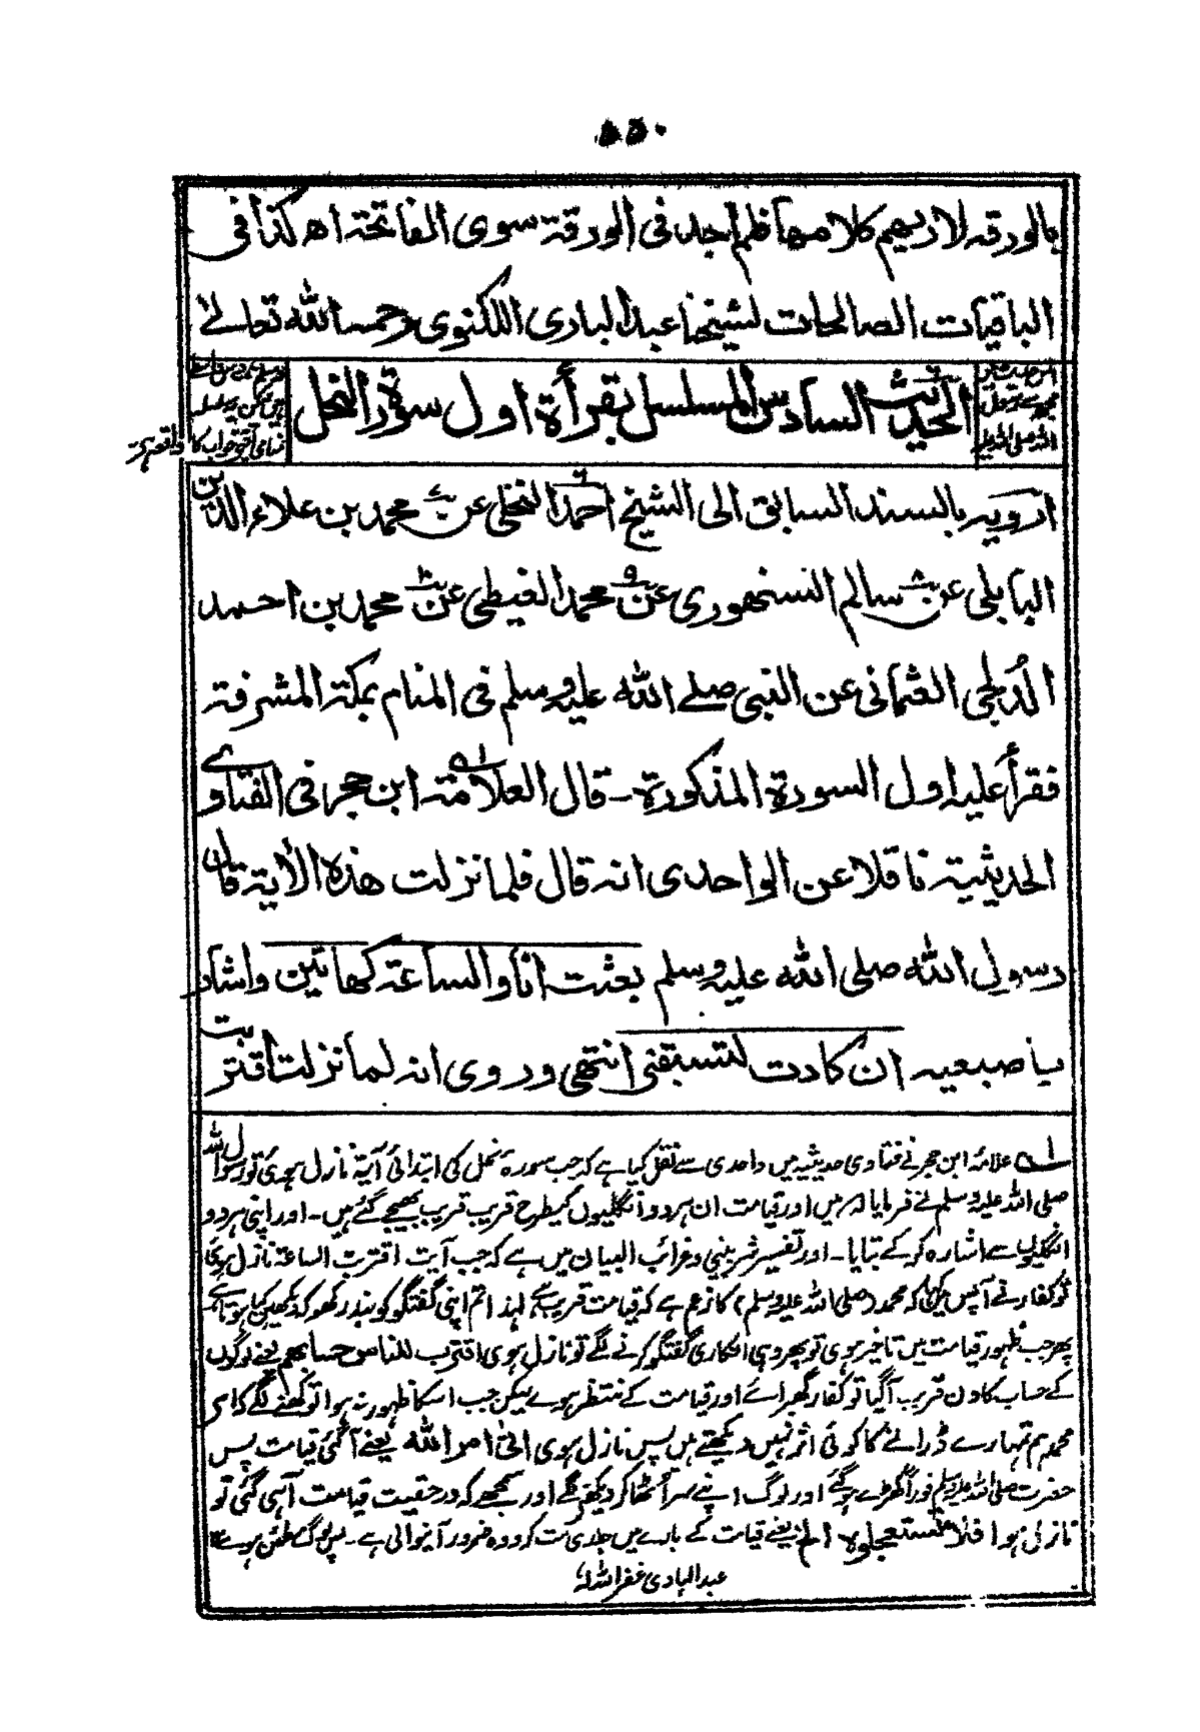 بالورقة لاريهم كلامها فلم اجد فى الورقة سوى الفاتحة اه كذا فى
الباقيات الصالحات لشيخنا عبد البارى اللكنوى رحمه الله تعالے
الحديث السادس المسلسل بقرأة اول سورة النحل
ارويه بالسند السابق الى الشيخ احمد النخلى عن محمد بن علاء الدين
البابلى عن سالم السنهورى عن محمد الغيطى عن محمد بن احمد
الدُلجى العثمانى عن النبى صلے الله عليه وسلم فى المنام بمكة المشرفة
فقرأ عليه اول السورة المذكورة - قال العلامة ابن حجر فى الفتاوے
الحديثية ناقلا عن الواحدى انه قال فلما نزلت هذه الأية قال
رسول الله صلى الله عليه وسلم بعثت انا والساعة كهاتين واشار
باصبعيه ان كادت لتسبقنى انتهى وروى انه لما نزلت اقتربت
لـه علامہ ابن حجر نے فتاوی حدیثیہ میں واحدی سے نقل کیا ہے کہ جب سورۂ نحل کی ابتدائی آیۃ نازل ہوئی تو رسول اللہ
صلی اللہ علیہ وسلم نے فرمایا کہ میں اور قیامت ان ہر دو انگلیوں کیطرح قریب قریب بھیجے گئے ہیں - اور اپنی ہر دو
انگلیوں سے اشارہ کر کے بتایا - اور تفسیر شربینی وغرائب البیان میں ہے کہ جب آیت اقتربت الساعۃ نازل ہوئی
تو کفار نے آپس میں کہا کہ محمد (صلی اللہ علیہ وسلم) کا زعم ہے کہ قیامت قریب ہے لہذا تم اپنی گفتگو کو بند رکھو کہ دیکھیں کیا ہوتا ہے
پھر جب ظہور قیامت میں تاخیر ہوی تو پھر وہی انکاری گفتگو کرنے لگے تو نازل ہوی اقترب للناس حسابهم یعنے لوگوں
کے حساب کا دن قریب آگیا تو کفار گھبرائے اور قیامت کے منتظر ہوے لیکن جب اسکا ظہور نہ ہوا تو کہنے لگے کہ اے
محمد ہم تمہارے ڈرانے کا کوئی اثر نہیں دیکھتے ہیں پس نازل ہوی اتیٰ امر الله یعنے آگئی قیامت پس
حضرت صلی اللہ علیہ وسلم فوراً کھڑے ہو گئے اور لوگ اپنے سر اُٹھا کر دیکھنے لگے اور سمجھے کہ درحقیقت قیامت آہی گئی تو
نازل ہوا فلا تستعجلوه الخ یعنے قیامت کے بارے میں جلدی مت کرو وہ ضرور آنیوالی ہے - پس لوگ مطمئن ہوے ۱۲
عبد الہادی غفر اللہ لہ